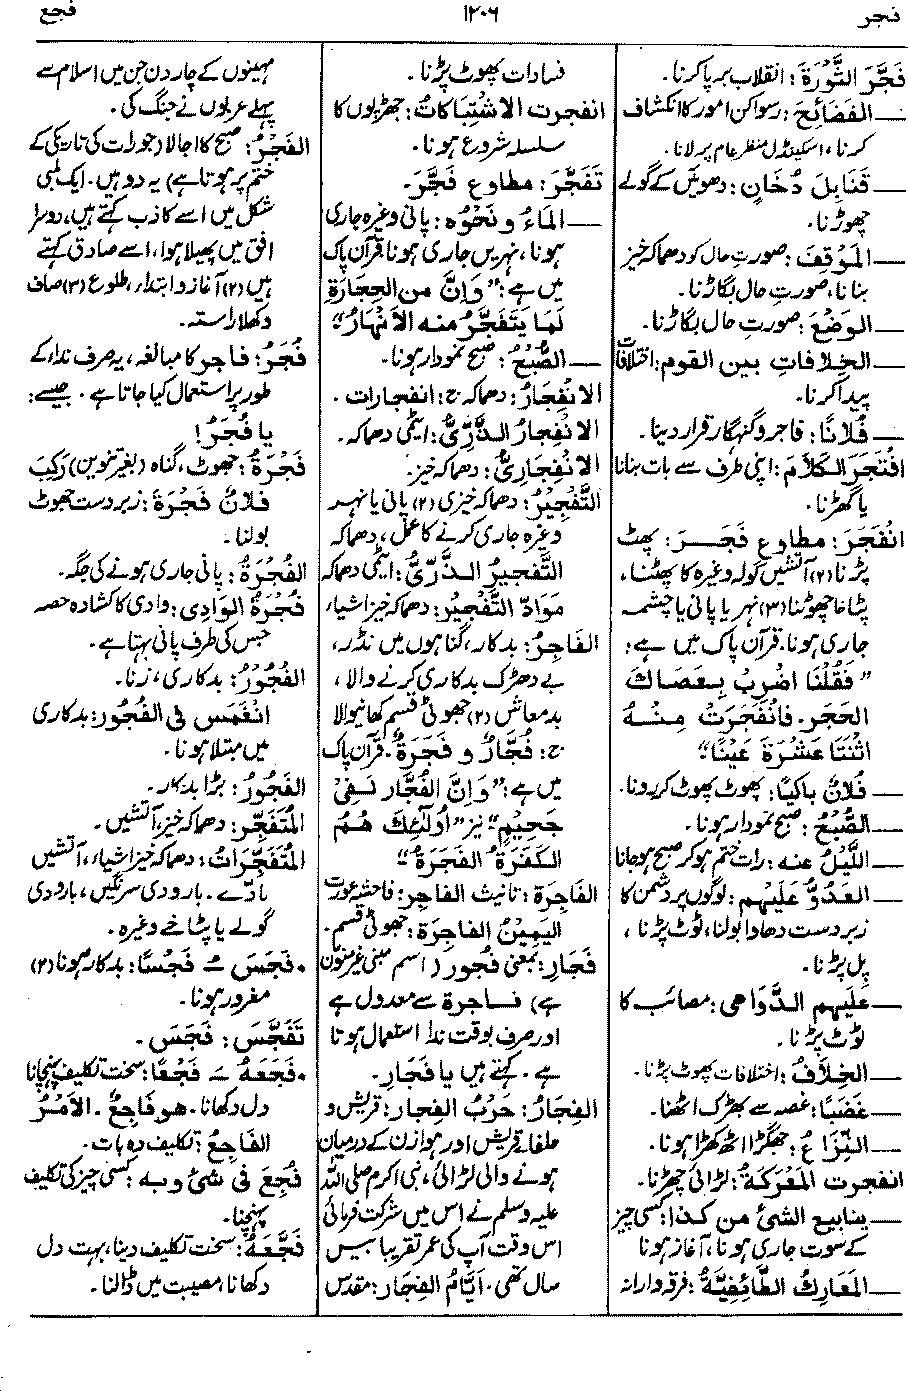 فجر
۱۲۰۶
فجع
فَجَّرَ الثَّوْرَةَ: انقلاب برپا کرنا۔
— الفَضَائِحَ: رسوا کن امور کا انکشاف
کرنا، اسکینڈل منظر عام پر لانا۔
— قَنَابِلَ دُخَانٍ: دھوئیں کے گولے
چھوڑنا۔
— المَوْقِفَ: صورتِ حال کو دھماکہ خیز
بنانا، صورتِ حال بگاڑنا۔
— الوَضْعَ: صورتِ حال بگاڑنا۔
— الخِلافاتِ بين القوم: اختلافات
پیدا کرنا۔
— فُلَانًا: فاجر و گنہگار قرار دینا۔
افْتَجَرَ الكَلَامَ: اپنی طرف سے بات بنانا
یا گھڑنا۔
انْفَجَرَ: مطاوع فَجَرَ: پھٹ
پڑنا (۲) آتشیں گولہ وغیرہ کا پھٹنا،
پٹاخا چھوٹنا (۳) نہر یا پانی یا چشمہ
جاری ہونا۔ قرآن پاک میں ہے:
”فَقُلْنَا اضْرِبْ بِعَصَاكَ
الحَجَرَ۔ فَانْفَجَرَتْ مِنْهُ
اثْنَتَا عَشْرَةَ عَيْنًا“
— فُلَانٌ بَاكِيًا: پھوٹ پھوٹ کر رونا۔
— الصُّبْحُ: صبح نمودار ہونا۔
— اللَّيْلُ عنه: رات ختم ہو کر صبح ہو جانا
— العَدُوُّ عَلَيْهِم: لوگوں پر دشمن کا
زبردست دھاوا بولنا، ٹوٹ پڑنا،
پل پڑنا۔
— عَلَيهِم الدَّوَاهِي: مصائب کا
ٹوٹ پڑنا۔
— الخِلَافُ: اختلافات پھوٹ پڑنا۔
— غَضَبًا: غصہ سے بھڑک اٹھنا۔
— النِّزَاعُ: جھگڑا اٹھ کھڑا ہونا۔
انفجرت المَعْرَكَةُ: لڑائی چھڑنا۔
— ينابيع الشئ من كذا: کسی چیز
کے سوت جاری ہونا، آغاز ہونا
— المَعَارِكُ الطَّائِفِيَّةُ: فرقہ وارانہ
فسادات پھوٹ پڑنا۔
انفجرت الاشْتِبَاكاتُ: جھڑپوں کا
سلسلہ شروع ہونا۔
تَفَجَّرَ: مطاوع فَجَّرَ۔
— المَاءُ ونَحْوُه: پانی وغیرہ جاری
ہونا، نہریں جاری ہونا۔ قرآن پاک
میں ہے: ”وَإِنَّ مِنَ الحِجَارَةِ
لَمَا يَتَفَجَّرُ منه الأَنْهَارُ“
— الصُّبْحُ: صبح نمودار ہونا۔
الانْفِجَارُ: دھماکہ ج: انفجارات۔
الانْفِجَارُ الذَّرِّيُّ: ایٹمی دھماکہ۔
الانْفِجَارِيُّ: دھماکہ خیز۔
التَّفْجِيْرُ: دھماکہ خیزی (۲) پانی یا نہر
وغیرہ جاری کرنے کا عمل، دھماکہ
التَّفجيرُ الذَّرِّيُّ: ایٹمی دھماکہ
مَوَادّ التَّفْجِيْرُ: دھماکہ خیز اشیاء
الفَاجِرُ: بدکار، گناہوں میں نڈر،
بے دھڑک بدکاری کرنے والا،
بدمعاش (۲) جھوٹی قسم کھانیوالا
ج: فُجَّارٌ و فَجَرَةٌ۔ قرآن پاک
میں ہے: ”وَإِنَّ الفُجَّارَ لَفِيْ
جَحِيْمٍ“ نیز ”أُولَئِكَ هُمُ
الكَفَرَةُ الفَجَرَةُ“
الفَاجِرَة: تانیث الفاجر: فاحشہ عورت
اليَمِيْنُ الفاجِرَة: جھوٹی قسم۔
فَجَارِ: بمعنی فُجُور (اسم مبنی غیر منون
ہے) فَاجرة سے معدول ہے
اور صرف بوقت ندا استعمال ہوتا
ہے۔ کہتے ہیں یا فَجَارِ۔
الفِجَارُ: حَرْبُ الفِجار: قریش و
حلفائے قریش اور ہوازن کے درمیان
ہونے والی لڑائی، نبی اکرم صلی اللہ
علیہ وسلم نے اس میں شرکت فرمائی
اس وقت آپ کی عمر تقریبا بیس
سال تھی۔ أَيَّامُ الفِجَار: مقدس
مہینوں کے چار دن جن میں اسلام سے
پہلے عربوں نے جنگ کی۔
الفَجْرُ: صبح کا اجالا (جو رات کی تاریکی کے
ختم پر ہوتا ہے) یہ دو ہیں۔ ایک لمبی
شکل میں اسے کاذب کہتے ہیں، دوسرا
افق میں پھیلا ہوا، اسے صادق کہتے
ہیں (۲) آغاز و ابتدا، طلوع (۳) صاف
دکھلا راستہ۔
فُجَرُ: فاجر کا مبالغہ، یہ صرف ندا کے
طور پر استعمال کیا جاتا ہے۔ جیسے:
یا فُجَرُ!
فَجْرَةُ: جھوٹ، گناہ (بغیر تنوین) رَكِبَ
فلانٌ فَجْرَةَ: زبردست جھوٹ
بولنا۔
الفُجْرَةُ: پانی جاری ہونے کی جگہ۔
فُجْرَةُ الوَادِي: وادی کا کشادہ حصہ
جس کی طرف پانی بہتا ہے۔
الفُجُوْرُ: بدکاری، زنا۔
انْغَمَسَ في الفُجُور: بدکاری
میں مبتلا ہونا۔
الفَجُورُ: بڑا بدکار۔
المُتَفَجِّر: دھماکہ خیز، آتشیں۔
المُتَفَجِّرَاتُ: دھماکہ خیز اشیاء، آتشیں
مادّے۔ بارودی سرنگیں، بارودی
گولے یا پٹاخے وغیرہ۔
• فَجَسَ ـُ فَجْسًا: بدکار ہونا (۲)
مغرور ہونا۔
تَفَجَّسَ: فَجَسَ۔
• فَجَعَهُ ـَ فَجْعًا: سخت تکلیف پہنچانا
دل دکھانا۔ هو فَاجِعٌ۔ الأَمْرُ
الفَاجِعُ: تکلیف دہ بات۔
فُجِعَ في شئ وبه: کسی چیز کی تکلیف
پہنچنا۔
فَجَّعَهُ: سخت تکلیف دینا، بہت دل
دکھانا، مصیبت میں ڈالنا۔